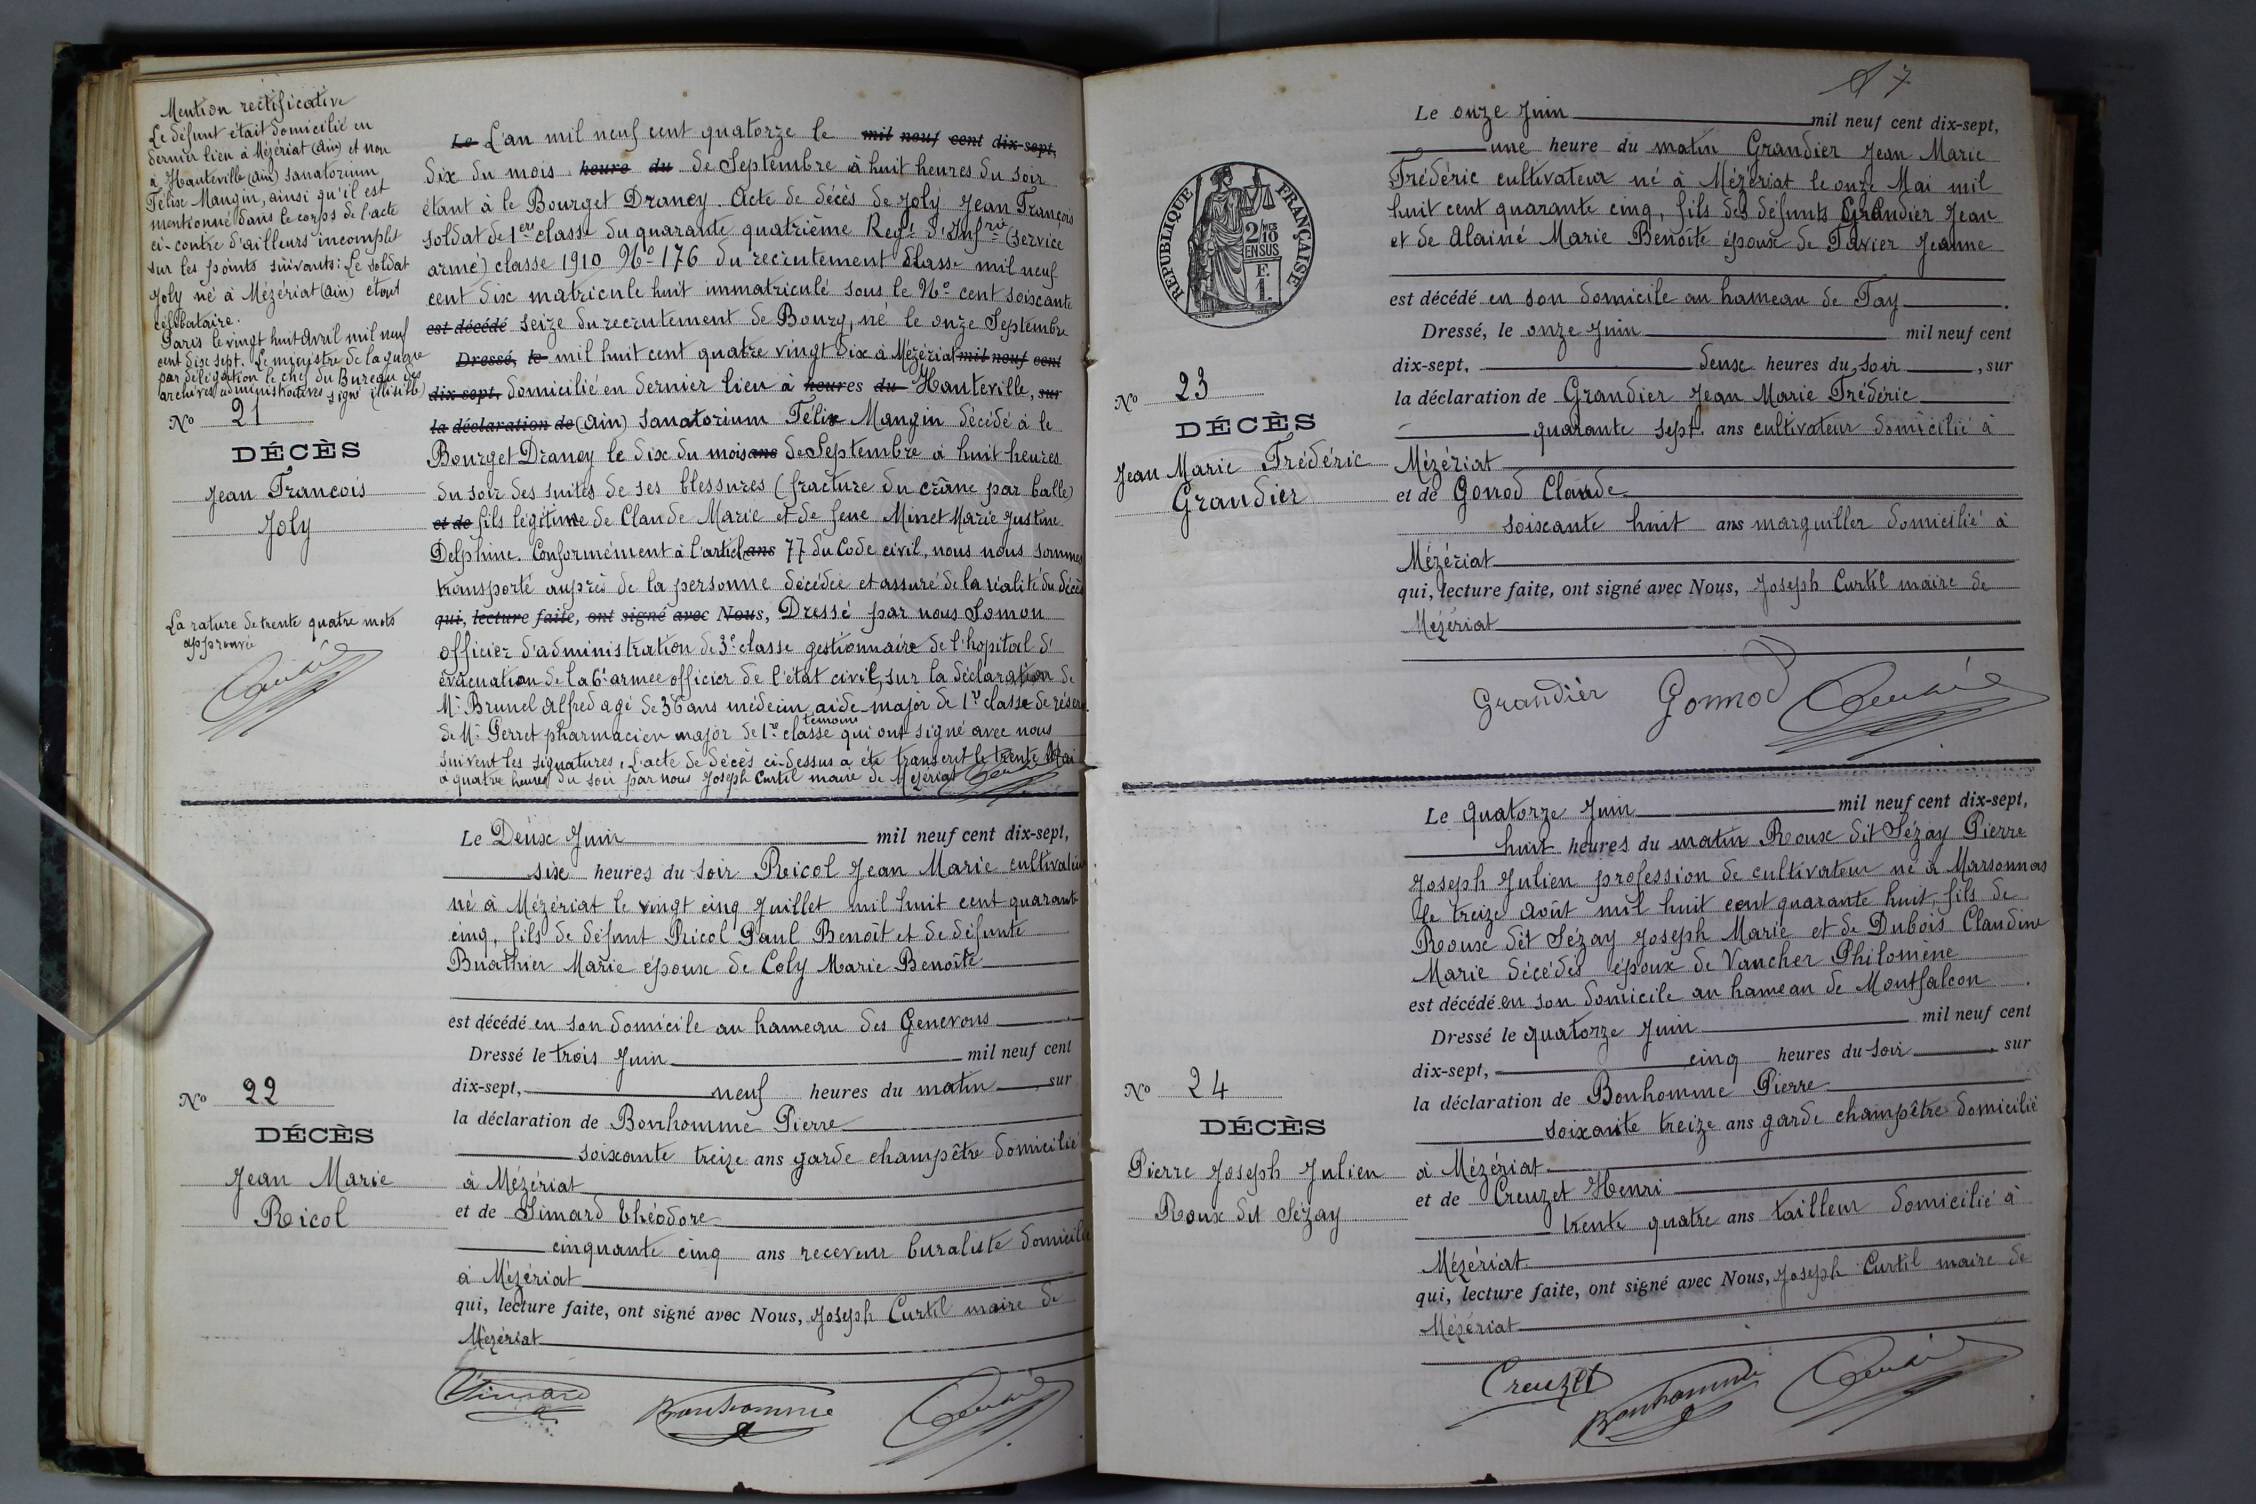 Mention rectificative
Le défunt était domicilié en
dernier lieu à Mézériat (Ain) et non
à Hauteville (Ain) sanatorium
Félix Mangin, ainsi qu'il est
mentionné dans le corps de l'acte
ci-contre d'ailleurs incomplet
sur les points suivants: Le soldat
Joly né à Mézériat (Ain) était
célibataire.
Paris le vingt huit avril mil neuf
cent dix sept. Le ministre de la guerre
par délégation le chef du Bureau des
archives administratives signé (illisible)
No 21
DÉCÈS
Jean François
Joly
La rature de trente quatre mots
approuvée
Le L'an mil neuf cent quatorze le mil neuf cent dix-sept,
dix du mois heure du de Septembre à huit heures du soir
étant à le Bourget Drancy. Acte de décès de Joly Jean François
soldat de 1ere classe du quarante quatrième Regt d'Infrie (service
armé) classe 1910 No 176 du recrutement classe mil neuf
cent dix matricule huit immatriculé sous le No cent soixante
est décédé seize du recrutement de Bourg, né le onze Septembre
Dressé, le mil huit cent quatre vingt dix à Mézériat mil neuf cent
dix-sept, domicilié en dernier lieu à heures du Hauteville, sur
la déclaration de (Ain) Sanatorium Félix Mangin décédé à le
Bourget Drancy le dix du mois ans de Septembre à huit heures
du soir des suites de ses blessures (fracture du crâne par balle)
et de fils légitime de Claude Marie et de feue Minet Marie Justine
Delphine. Conformément à l'article ans 77 du Code civil, nous nous sommes
transporté auprès de la personne décédée et assuré de la réalité du décès
qui, lecture faite, ont signé avec Nous, Dressé par nous Somon
officier d'administration de 3e classe gestionnaire de l'hopital d'
évacuation de la 6e armée officier de l'état civil, sur la déclaration de
Mr Brunel Alfred agé de 36 ans médecin aide-major de 1re classe de réserve
témoins
de Mr Perret pharmacien major de 1re classe qui ont signé avec nous
suivent les signatures. L'acte de décès ci-dessus a été transcrit le trente Mai
à quatre heures du soir par nous Joseph Curtil maire de Mézériat
No 22
DÉCÈS
Jean Marie
Ricol
Le Deux Juin mil neuf cent dix-sept,
six heures du soir Ricol Jean Marie cultivateur
né à Mézériat le vingt cinq Juillet mil huit cent quarante
cinq, fils de défunt Ricol Paul Benoît et de défunte
Buathier Marie époux de Coly Marie Benoîte
est décédé en son domicile au hameau des Generous
Dressé le trois Juin mil neuf cent
dix-sept, neuf heures du matin, sur
la déclaration de Bonhomme Pierre
soixante treize ans garde champêtre domicilié
à Mézériat
et de Simard Théodore
cinquante cinq ans receveur buraliste domicilié
à Mézériat
qui, lecture faite, ont signé avec Nous, Joseph Curtil maire de
Mézériat
Simard Bonhomme
17
RÉPUBLIQUE FRANÇAISE
2/10 MES
EN SUS
F.
1.
No 23
DÉCÈS
Jean Marie Frédéric
Grandier
Le onze Juin mil neuf cent dix-sept,
une heure du matin Grandier Jean Marie
Frédéric cultivateur né à Mézériat le onze Mai mil
huit cent quarante cinq, fils des défunts Grandier Jean
et de Alainé Marie Benoîte époux de Tavier Jeanne
est décédé en son domicile au hameau de Fay.
Dressé, le onze Juin mil neuf cent
dix-sept, deux heures du soir, sur
la déclaration de Grandier Jean Marie Frédéric
quarante sept ans cultivateur domicilié à
Mézériat
et de Gonod Claude
soixante huit ans marguiller domicilié à
Mézériat
qui, lecture faite, ont signé avec Nous, Joseph Curtil maire de
Mézériat
Grandier Gonnod
No 24
DÉCÈS
Pierre Joseph Julien
Roux dit Sézay
Le quatorze Juin mil neuf cent dix-sept,
huit heures du matin Roux dit Sézay Pierre
Joseph Julien profession de cultivateur né à Marsonnas
le treize août mil huit cent quarante huit, fils de
Roux dit Sézay Joseph Marie et de Dubois Claudine
Marie décédés époux de Vaucher Philomène
est décédé en son domicile au hameau de Montfalcon.
Dressé le quatorze Juin mil neuf cent
dix-sept, cinq heures du soir, sur
la déclaration de Bonhomme Pierre
soixante treize ans garde champêtre domicilié
à Mézériat
et de Creuzet Henri
trente quatre ans tailleur domicilié à
Mézériat
qui, lecture faite, ont signé avec Nous, Joseph Curtil maire de
Mézériat
Creuzet Bonhomme